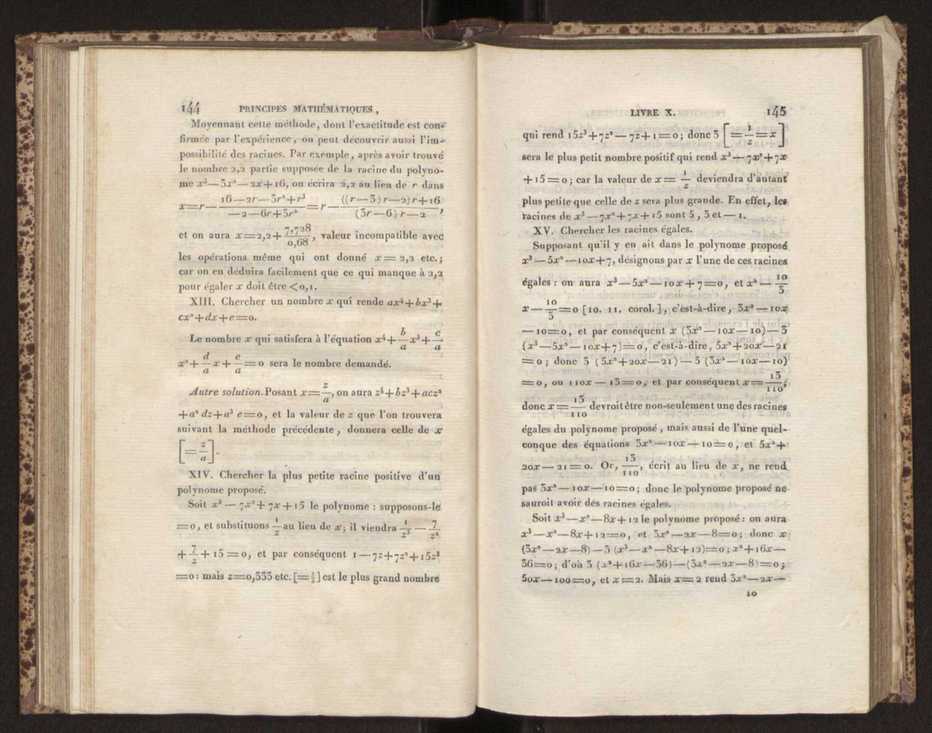 144 PRINCIPES MATHÉMATIQUES,
Moyennant cette méthode, dont l'exactitude est con-
firmée par l'expérience, on peut découvrir aussi l'im-
possibilité des racines. Par exemple, après avoir trouvé
le nombre 2,2 partie supposée de la racine du polyno-
me x³—3x²—2x+16, on écrira 2,2 au lieu de r dans
x=r—(16—2r—3r²+r³)/(—2—6r+3r²)=r—(((r—3)r—2)r+16)/((3r—6)r—2),
et on aura x=2,2+7,728/0,68, valeur incompatible avec
les opérations même qui ont donné x=2,2 etc.;
car on en déduira facilement que ce qui manque à 2,2
pour égaler x doit être <0,1.
XIII. Chercher un nombre x qui rende ax⁴+bx³+
cx²+dx+e=0.
Le nombre x qui satisfera à l'équation x⁴+b/a x³+c/a
x²+d/a x+e/a=0 sera le nombre demandé.
Autre solution. Posant x=z/a, on aura z⁴+bz³+acz²
+a²dz+a³e=0, et la valeur de z que l'on trouvera
suivant la méthode précédente, donnera celle de x
[=z/a].
XIV. Chercher la plus petite racine positive d'un
polynome proposé.
Soit x³—7x²+7x+15 le polynome : supposons-le
=0, et substituons 1/z au lieu de x; il viendra 1/z³—7/z²
+7/z+15=0, et par conséquent 1—7z+7z²+15z³
=0: mais z=0,333 etc. [=⅓] est le plus grand nombre
LIVRE X. 145
qui rend 15z³+7z²—7z+1=0; donc 3 [=1/z=x]
sera le plus petit nombre positif qui rend x³—7x²+7x
+15=0; car la valeur de x=1/z deviendra d'autant
plus petite que celle de z sera plus grande. En effet, les
racines de x³—7x²+7x+15 sont 5, 3 et —1.
XV. Chercher les racines égales.
Supposant qu'il y en ait dans le polynome proposé
x³—5x²—10x+7, désignons par x l'une de ces racines
égales : on aura x³—5x²—10x+7=0, et x²—10/3
x—10/3=0 [10. 11. corol.], c'est-à-dire, 3x²—10x
—10=0, et par conséquent x (3x²—10x—10)—3
(x³—5x²—10x+7)=0, c'est-à-dire, 5x²+20x—21
=0; donc 3 (5x²+20x—21)—5 (3x²—10x—10)
=0, ou 110x—13=0, et par conséquent x=13/110;
donc x=13/110 devroit être non-seulement une des racines
égales du polynome proposé, mais aussi de l'une quel-
conque des équations 3x²—10x—10=0, et 5x²+
20x—21=0. Or, 13/110, écrit au lieu de x, ne rend
pas 3x²—10x—10=0; donc le polynome proposé ne
sauroit avoir des racines égales.
Soit x³—x²—8x+12 le polynome proposé : on aura
x³—x²—8x+12=0, et 3x²—2x—8=0; donc x
(3x²—2x—8)—3 (x³—x²—8x+12)=0; x²+16x—
36=0; d'où 3 (x²+16x—36)—(3x²—2x—8)=0;
50x—100=0, et x=2. Mais x=2 rend 3x²—2x—
10